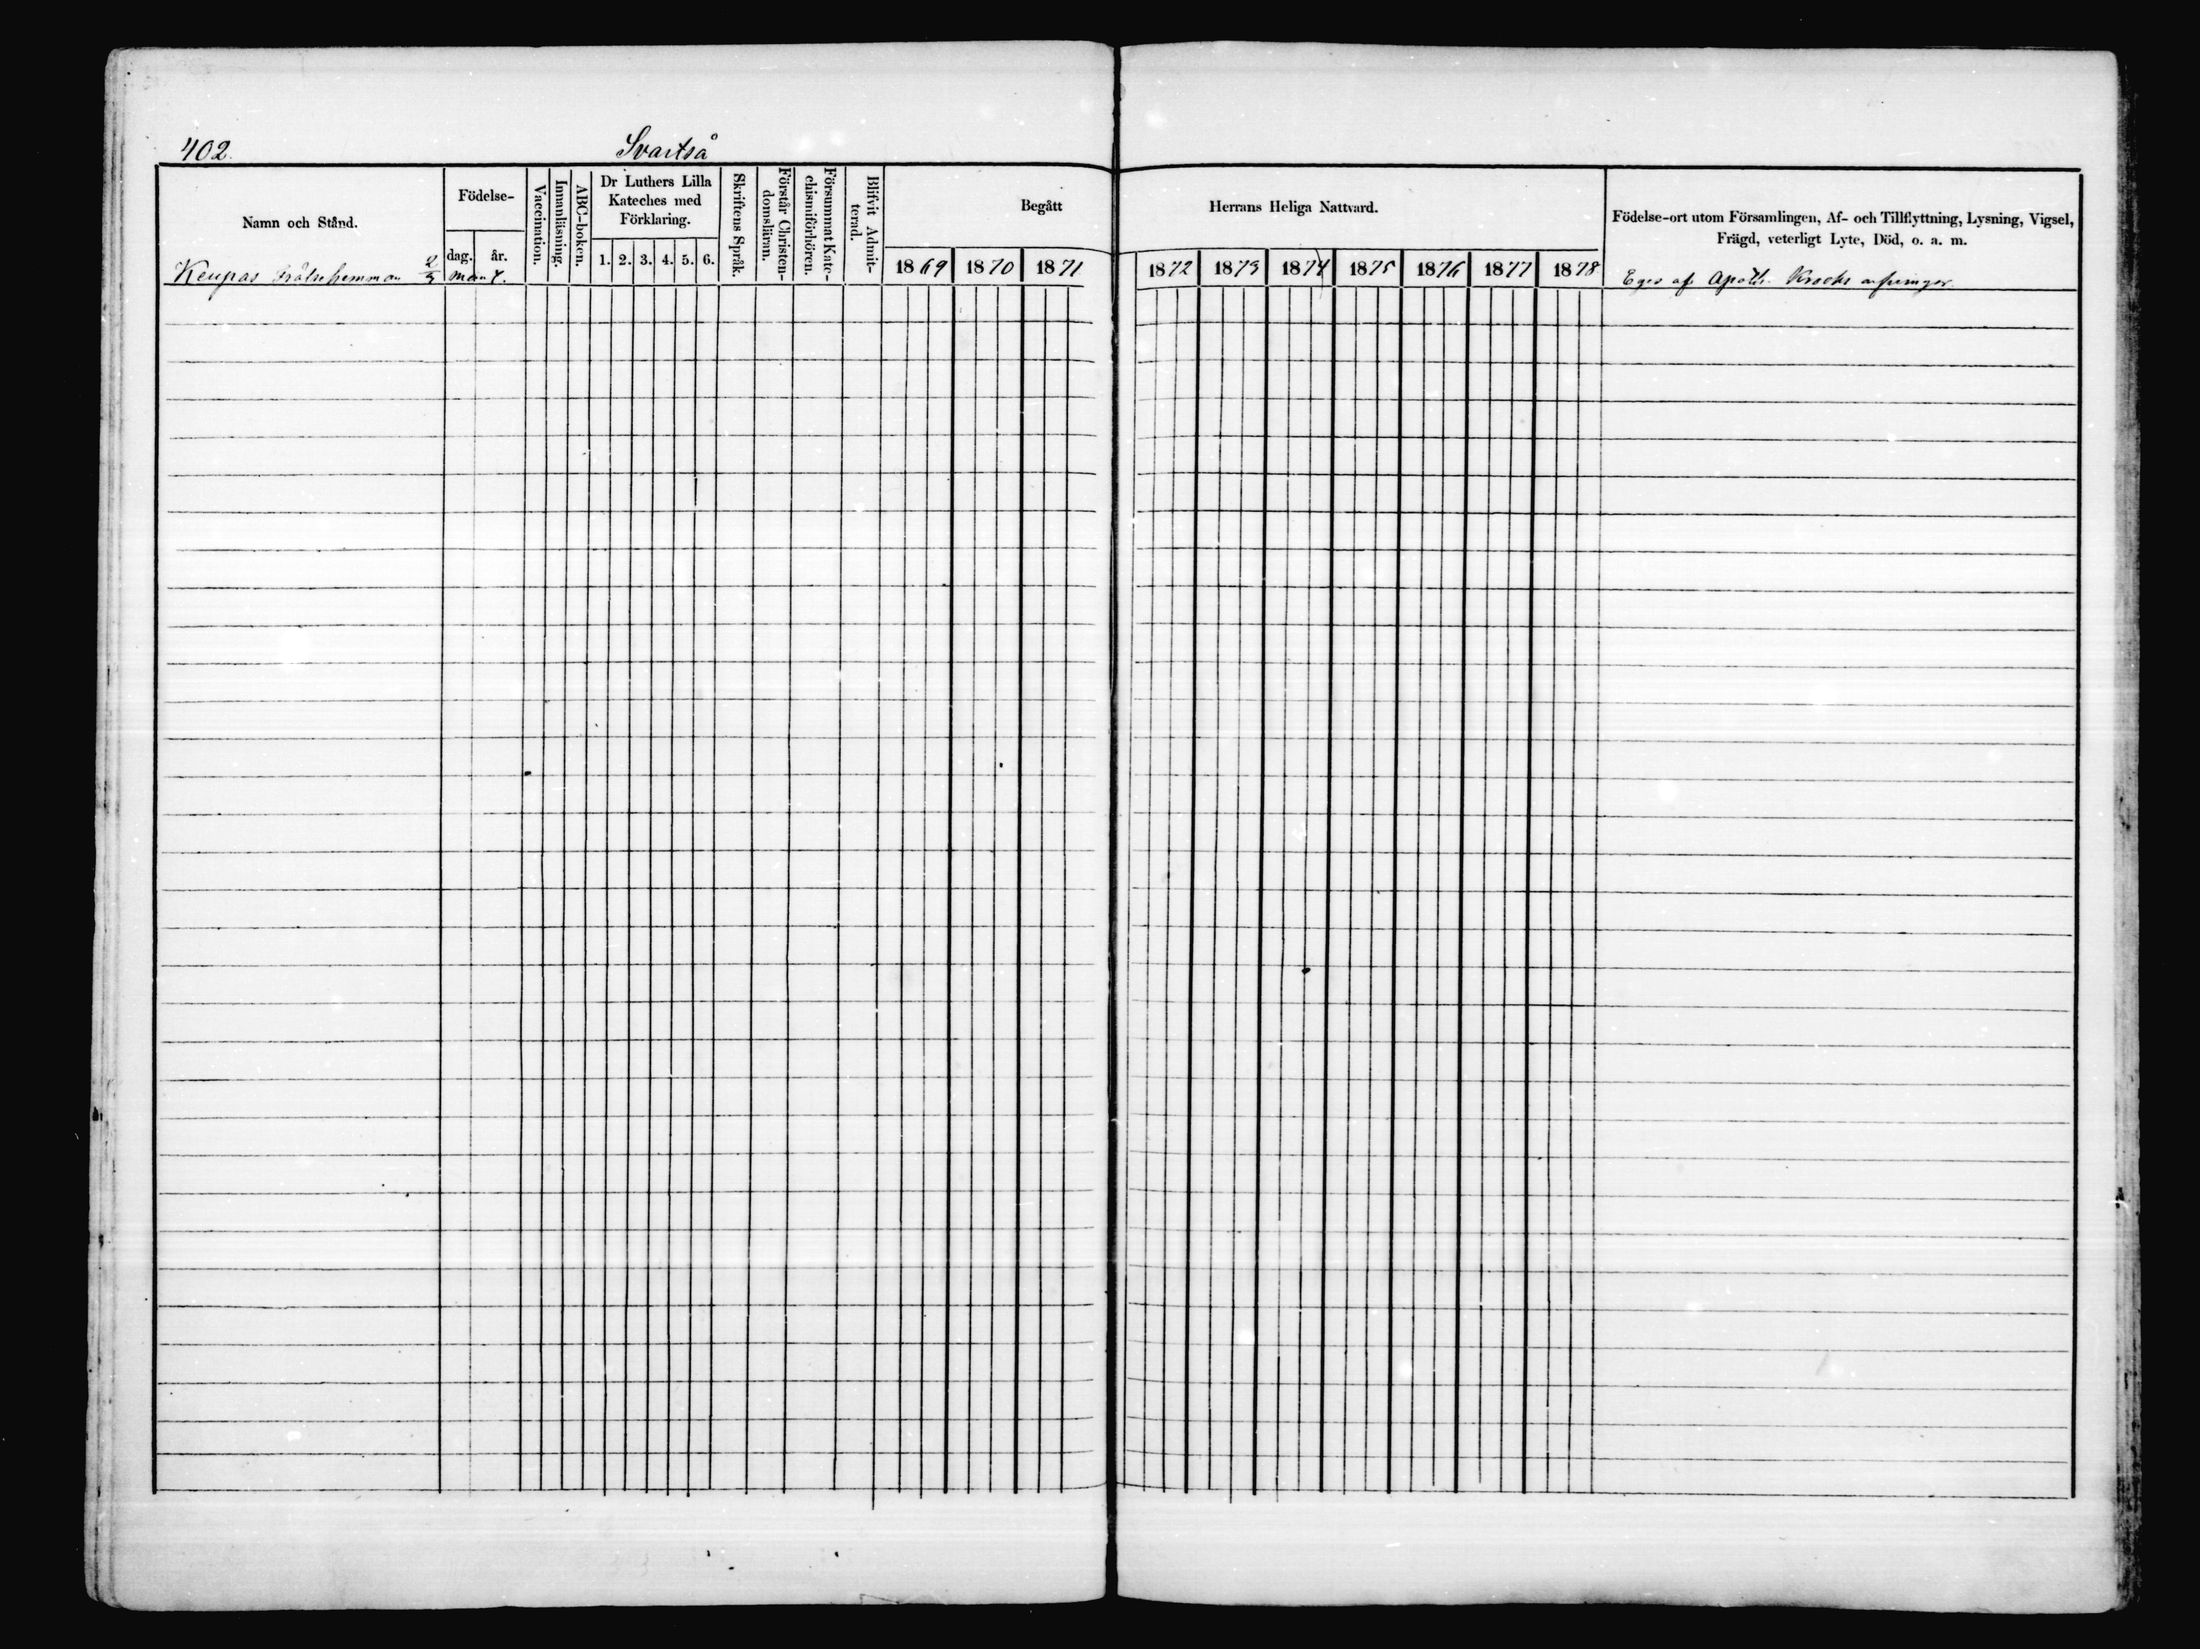 402.
Svartså
Namn och Stånd.
Födelse-
dag.
år.
Vaccination.
Innanläsning.
ABC-boken.
Dr Luthers Lilla
Kateches med
Förklaring.
1. 2. 3. 4. 5. 6.
Skriftens Språk.
Förstår Christen-
domsläran.
Försummat Kate-
chismiförhören.
Blifvit Admit-
terad.
Begått
1869 1870 1871
Herrans Heliga Nattvard.
1872 1873 1874 1875 1876 1877 1878
Födelse-ort utom Församlingen, Af- och Tillflyttning, Lysning, Vigsel,
Frägd, veterligt Lyte, Död, o. a. m.
Keupas frälsehemman 2/3 mant.
Eges af Apoth. Krooks arfvingar